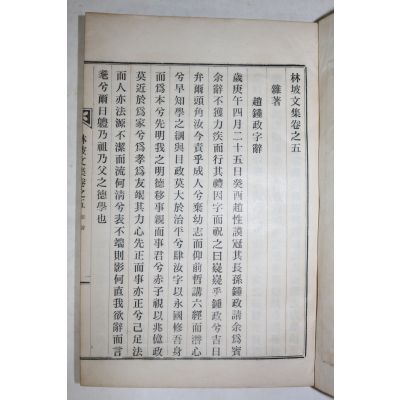 林坡文集卷之五
雜著
趙鍾政字辭
歲庚午四月二十五日癸酉趙性謨冠其長孫鍾政請余爲賓
余辭不獲力疾而行其禮因字而祝之曰嶷嶷乎鍾政兮吉日
弁爾頭角汝今責乎成人兮棄幼志而仰前哲講六經而潛心
兮早知學之綱與目政莫大於治平兮肆汝字以永國修吾身
而爲本兮先明我之明德移事親而事君兮赤子視以兆億政
莫近於爲家兮爲孝爲友竭其力心先正而事亦正兮己足法
而人亦法源不潔而流何淸兮表不端則影何直我欲辭而言
耄兮爾日軆乃祖乃父之德學也
林坡文集卷之五